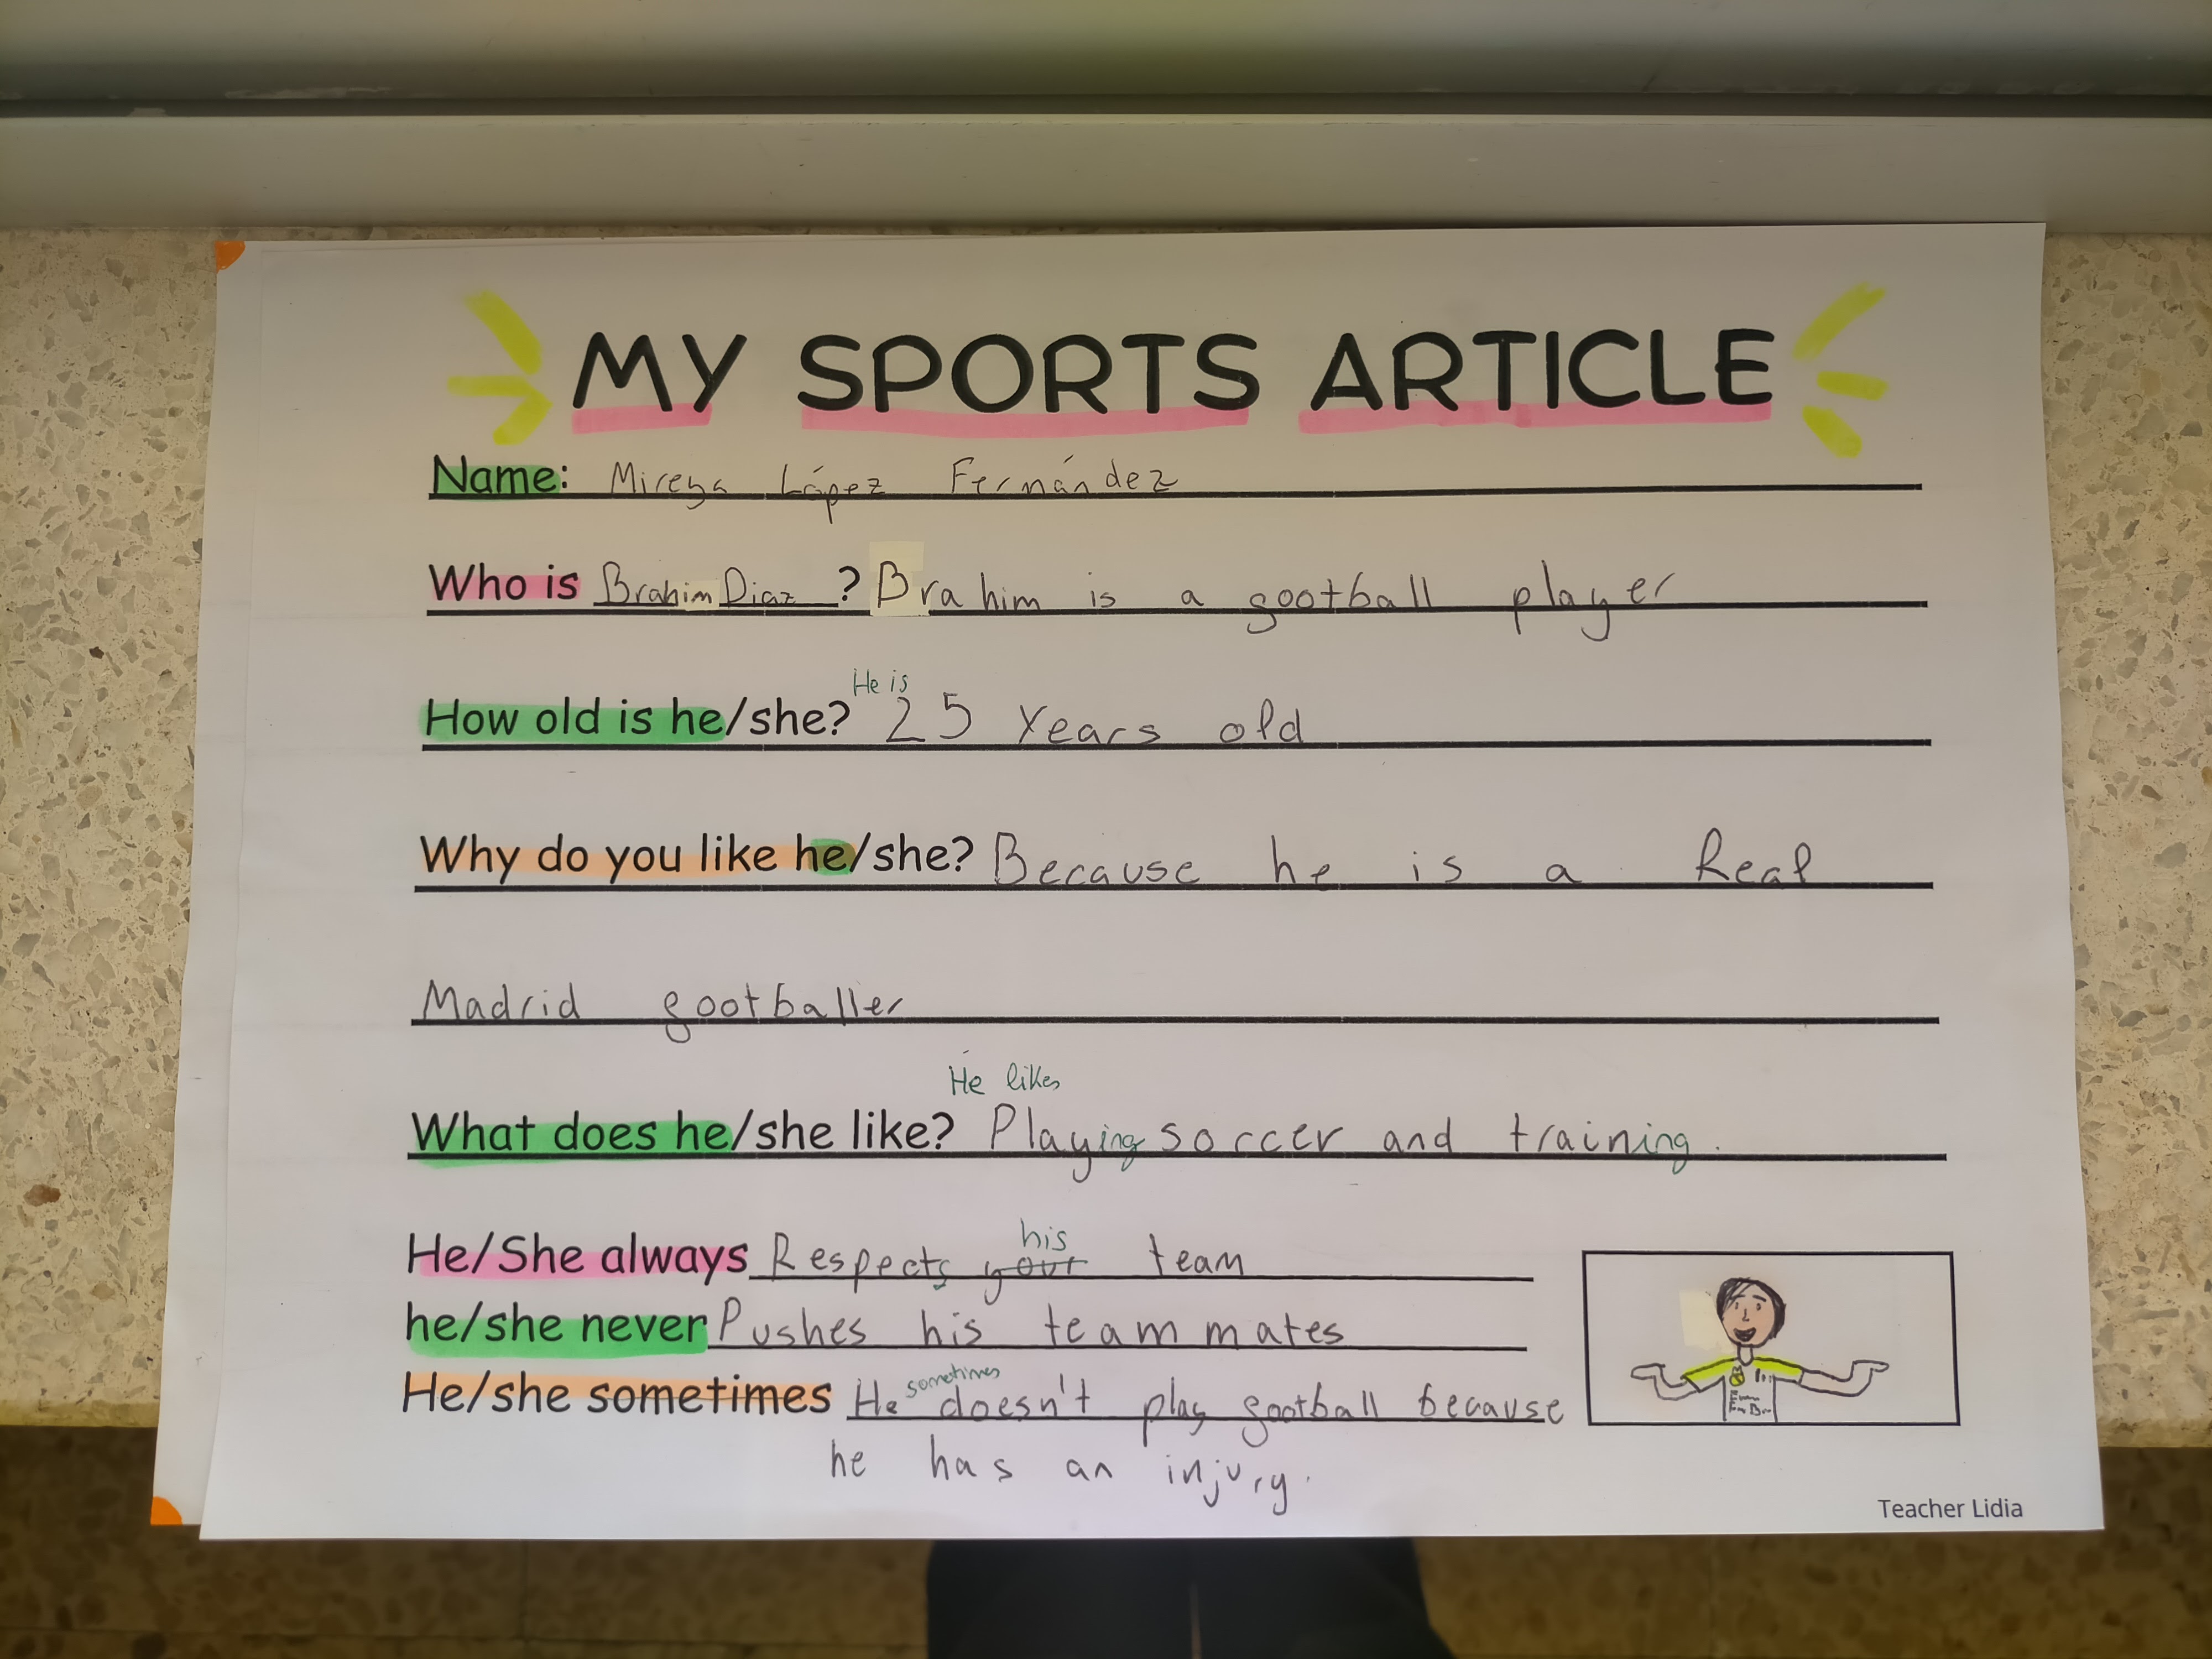 MY SPORTS ARTICLE
Name: Mireya López Fernández
Who is Brahim Diaz ? Brahim is a gootball player
He is
How old is he/she? 25 Years old
Why do you like he/she? Because he is a Real
Madrid gootballer
He likes
What does he/she like? Playing soccer and training.
his
He/She always Respects your team
he/she never Pushes his teammates
sometimes
He/she sometimes He doesn't play gootball because
he has an injury.
Teacher Lidia